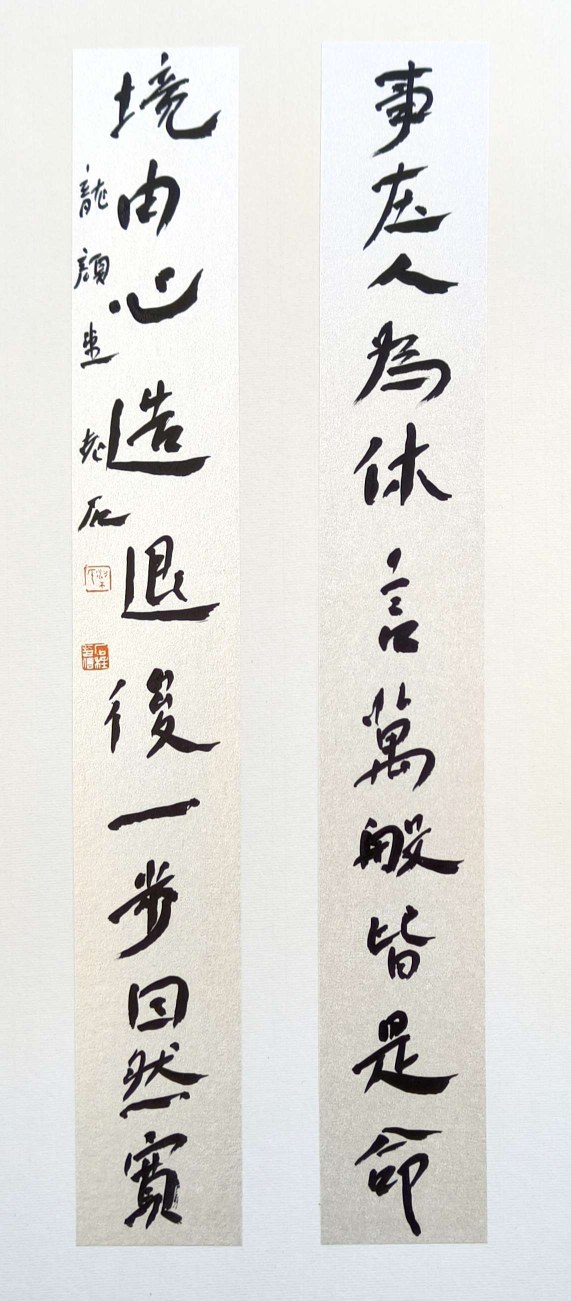 事在人為休言萬般皆是命
境由心造退後一步自然寬
龍顏 石